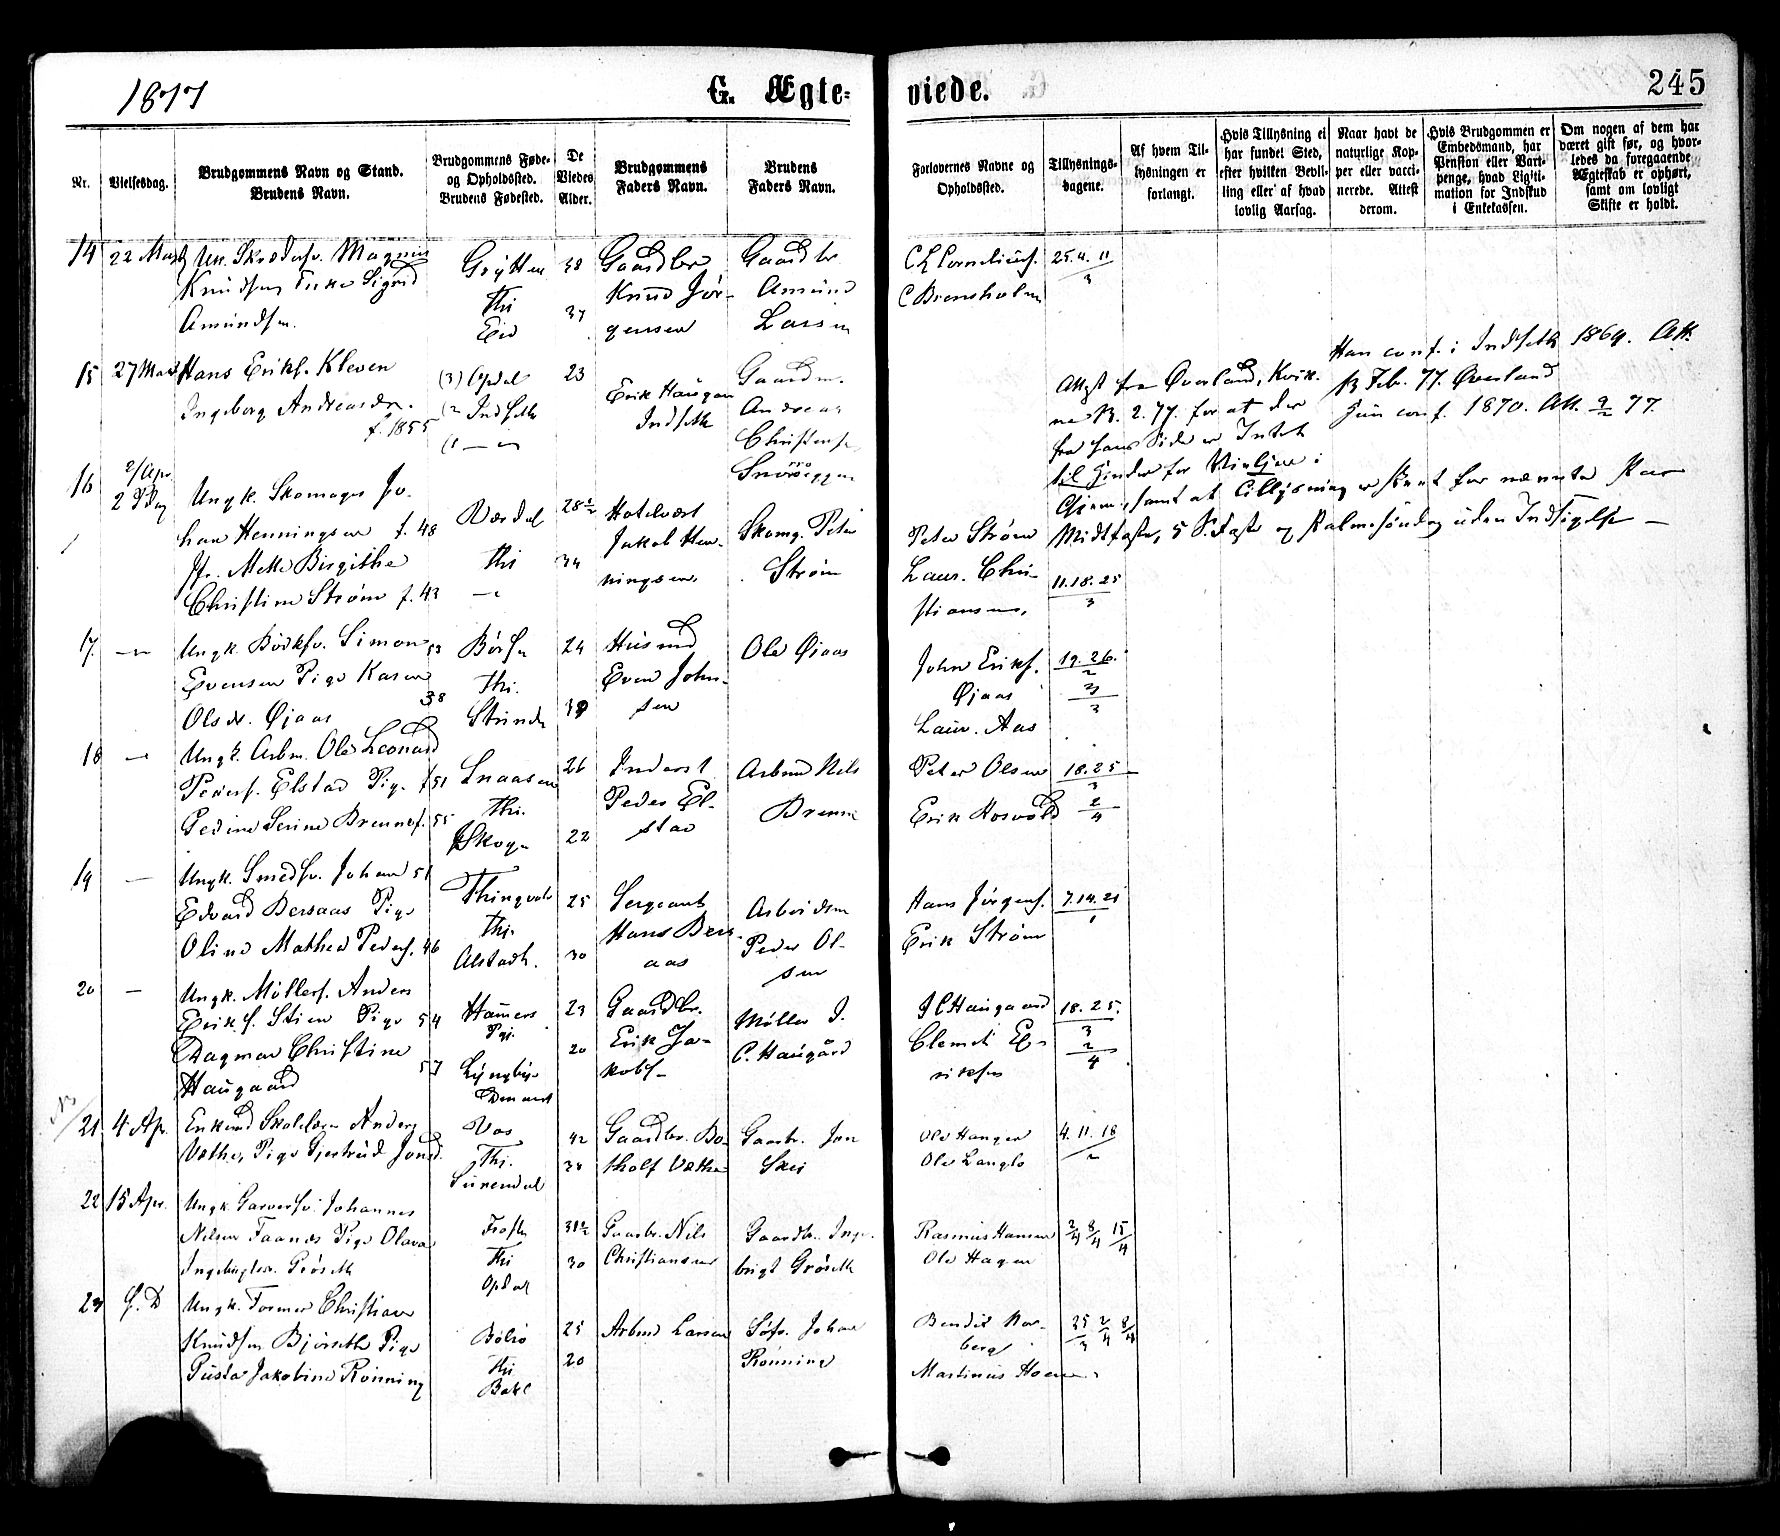 1877
G. Ægte-
viede.
245
Nr.
Vielsesdag.
Brudgommens Navn og Stand.
Brudens Navn.
Brudgommens Føde-
og Opholdssted.
Brudens Fødested.
De
Viedes
Alder.
Brudgommens
Faders Navn.
Brudens
Faders Navn.
Forlovernes Navne og
Opholdssted.
Tillysnings-
dagene.
Af hvem Til-
lysningen er
forlangt.
Hvis Tillysning ei
har fundet Sted,
efter hvilken Bevil-
ling eller af hvad
lovlig Aarsag.
Naar havt de
naturlige Kop-
per eller vacci-
nerede. Attest
derom.
Hvis Brudgommen er
Embedsmand, har
Pension eller Vart-
penge, hvad Legiti-
mation for Indskud
i Enkekassen.
Om nogen af dem har
været gift før, og hvor-
ledes da foregaaende
Ægteskab er ophørt,
samt om lovligt
Skifte er holdt.
14
22 Marts
Un. Skrædersv. Magnus
Knudsen Sigrid
Amundsen
Grytten
Thi
Eid
38
37
Gaardbr
Knud Jør-
gensen
Gaardbr
Amund
Larsen
C L Corneliusf.
C Brensholm
25. 4. 11
3
15
27 Marts
Hans Eriks. Kleven
Ingeborg Andreasdr.
f. 1855
(3) Opdal
(2 Indseth
23
Erik Haugan
Indseth
Gaardm.
Andreas
Christense
Attest fra Øverland, Kvik-
ne 13. 2. 77. for at der
fra hans Side er Intet
til Hinder for Vielsen i
samt at Tillysning er skeet for nævnte Par
Midtfaste, 5 S. Faste og Palmesøndag uden Indsigelse
Han conf. i Indseth 1869. Att.
13 Feb. 77. Øverland
Hun conf. 1870. Att. 9/2 77.
16
2/Apr.
2 P Dag
Ungk. Skomager Jo-
han Henningsen f. 48
Jfr. Mette Birgithe
Christine Strøm f. 43
Værdal
Thi
28 1/2
34
Hotelvært
Jakob Hen-
ningsen
Skomg. Peter
Strøm
Peter Strøm
Laur. Chri-
stiansen,
11. 18. 25
3
17
Ungk. Bødksv. Simon 53
Evensen Pige Karen
38
Olsdr. Øjaas
Børsen
Thi.
Strinde
24
39
Husmd
Even John-
sen
Ole Øjaas
John Eriks.
Øjaas
Laur. Aas
19. 26.
2
3
18
Ungk. Arbm. Ole Leonard
Peders. Elstad Pige f 51
Pedine Serine Brennes. 55
Snaasen
Thi.
Skogn
26
22
Inderst
Peder El-
stad
Arbmd Nils
Brenne
Peter Olsen
Erik Hosvold
18. 25
3
2
4
19
Ungk. Smedsv. Johan 51
Edvard Bersaas Pige
Oline Mathea Peders. 46
Thingvold
Thi.
Alstadh.
25
30
Sergeant
Hans Bers-
aas
Arbeidsm
Peder Ol-
sen
Hans Jørgens.
Erik Strøm
7. 14. 21
1
20
Ungk. Møllers. Anders
Eriks. Stien Pige 54
Dagmar Christine
57
Haugaard
Hamers
Lyngby
Danmark
23
20
Gaardbr.
Erik Ja-
kobs.
Møller J.
C. Haugård
J C Haugaard
Clemet E-
riksen
18. 25.
3
2
4
21
4 Ap.
Enkemd Skolelærer Anders
Vethe, Pige Gjertrud Jonsd.
Vos
Thi.
Surendal
42
38
Gaardbr. Bo-
tholf Vethe
Gaardbr. Jon
Skei
Ole Hangen
Ole Langlo
4. 11. 18
2
22
15 Apr.
Ungk. Garversv. Johannes
Nilsen Faanes Pige Olava
Ingebrigtsen. Grøseth
Frosten
Thi
Opdal
31 1/2
30
Gaardbr. Nils
Christiansen
Gaardbr. Inge-
brigt Grøseth
Rasmus Hansen
Ole Hagen
2/4 8/4 15/4
23
S. D
Ungk. Former Christian
Knudsen Bjørseth Pige
Gusta Jakobine Rønning
Bolsø
Thi
Bakl
25
20
Arbmd Larsen
Johan
Rønning
Bendit Nor-
berg
Martinus Hoem
25/3 2/4 8/4